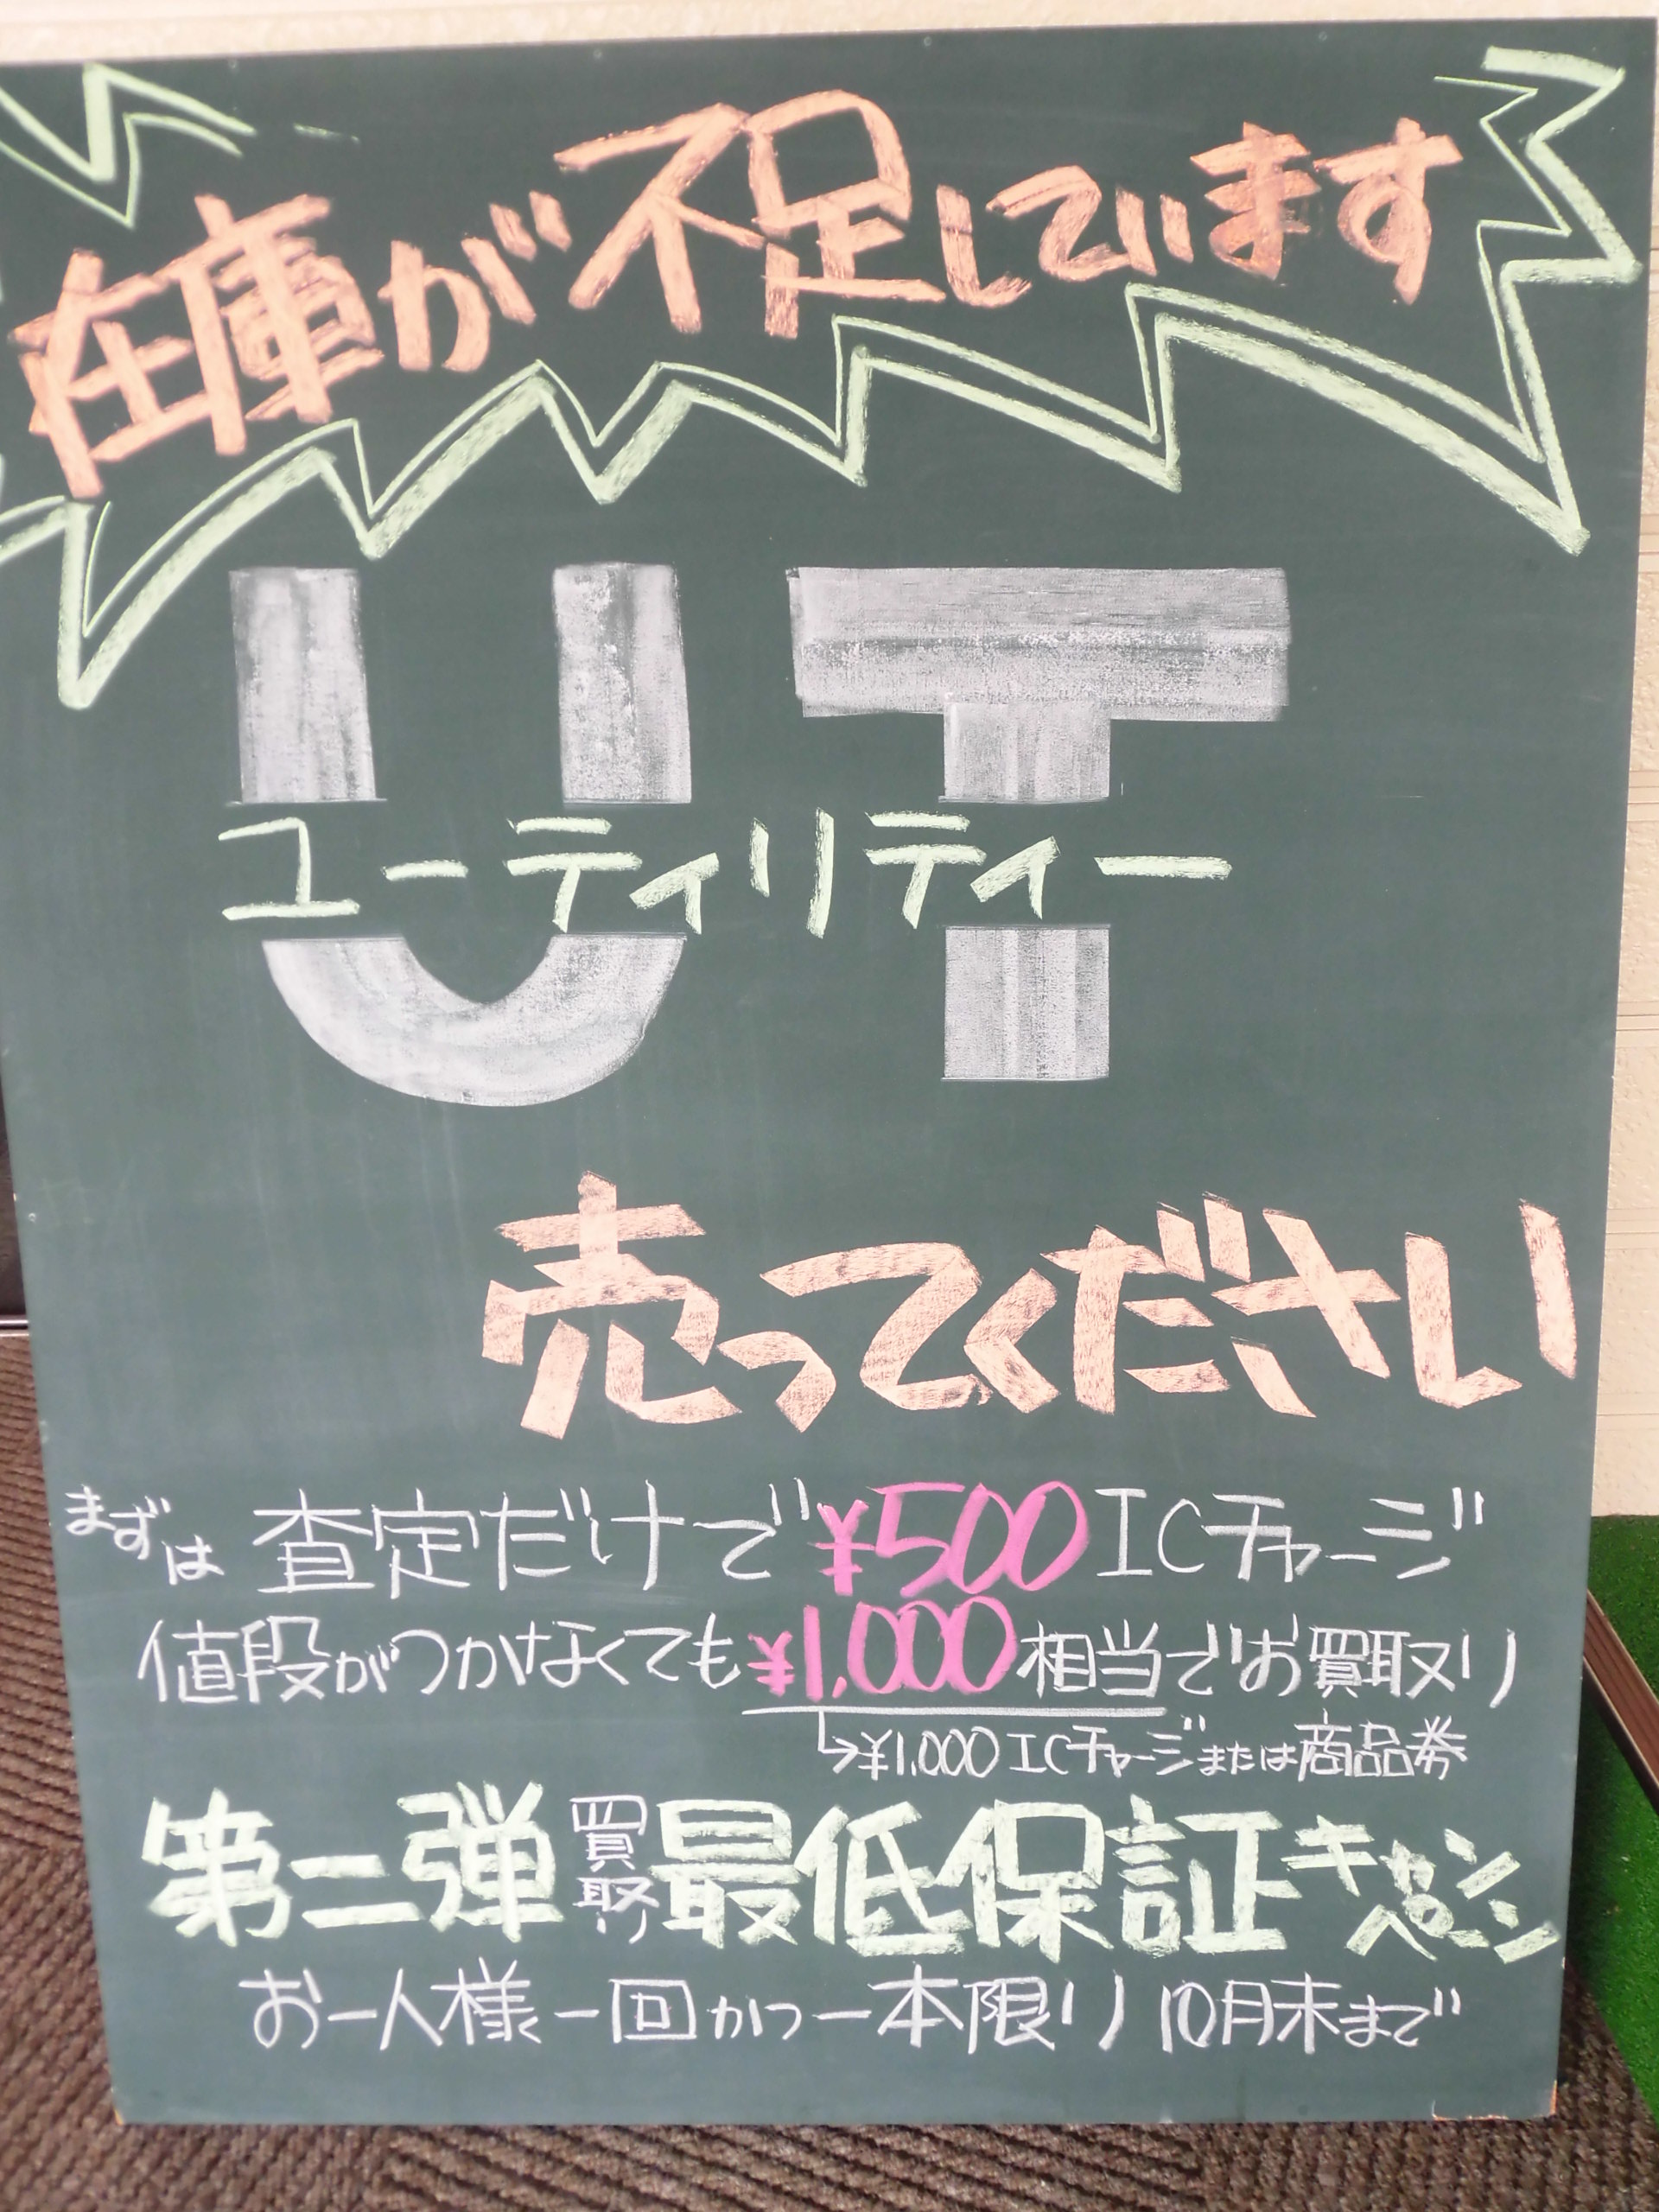 在庫が不足しています
UT
ユーティリティー
売ってください
まずは査定だけで¥500ICチャージ
値段がつかなくても¥1,000相当でお買取り
↳¥1,000ICチャージまたは商品券
第二弾買取り最低保証キャンペーン
お一人様一回かつ一本限り10月末まで